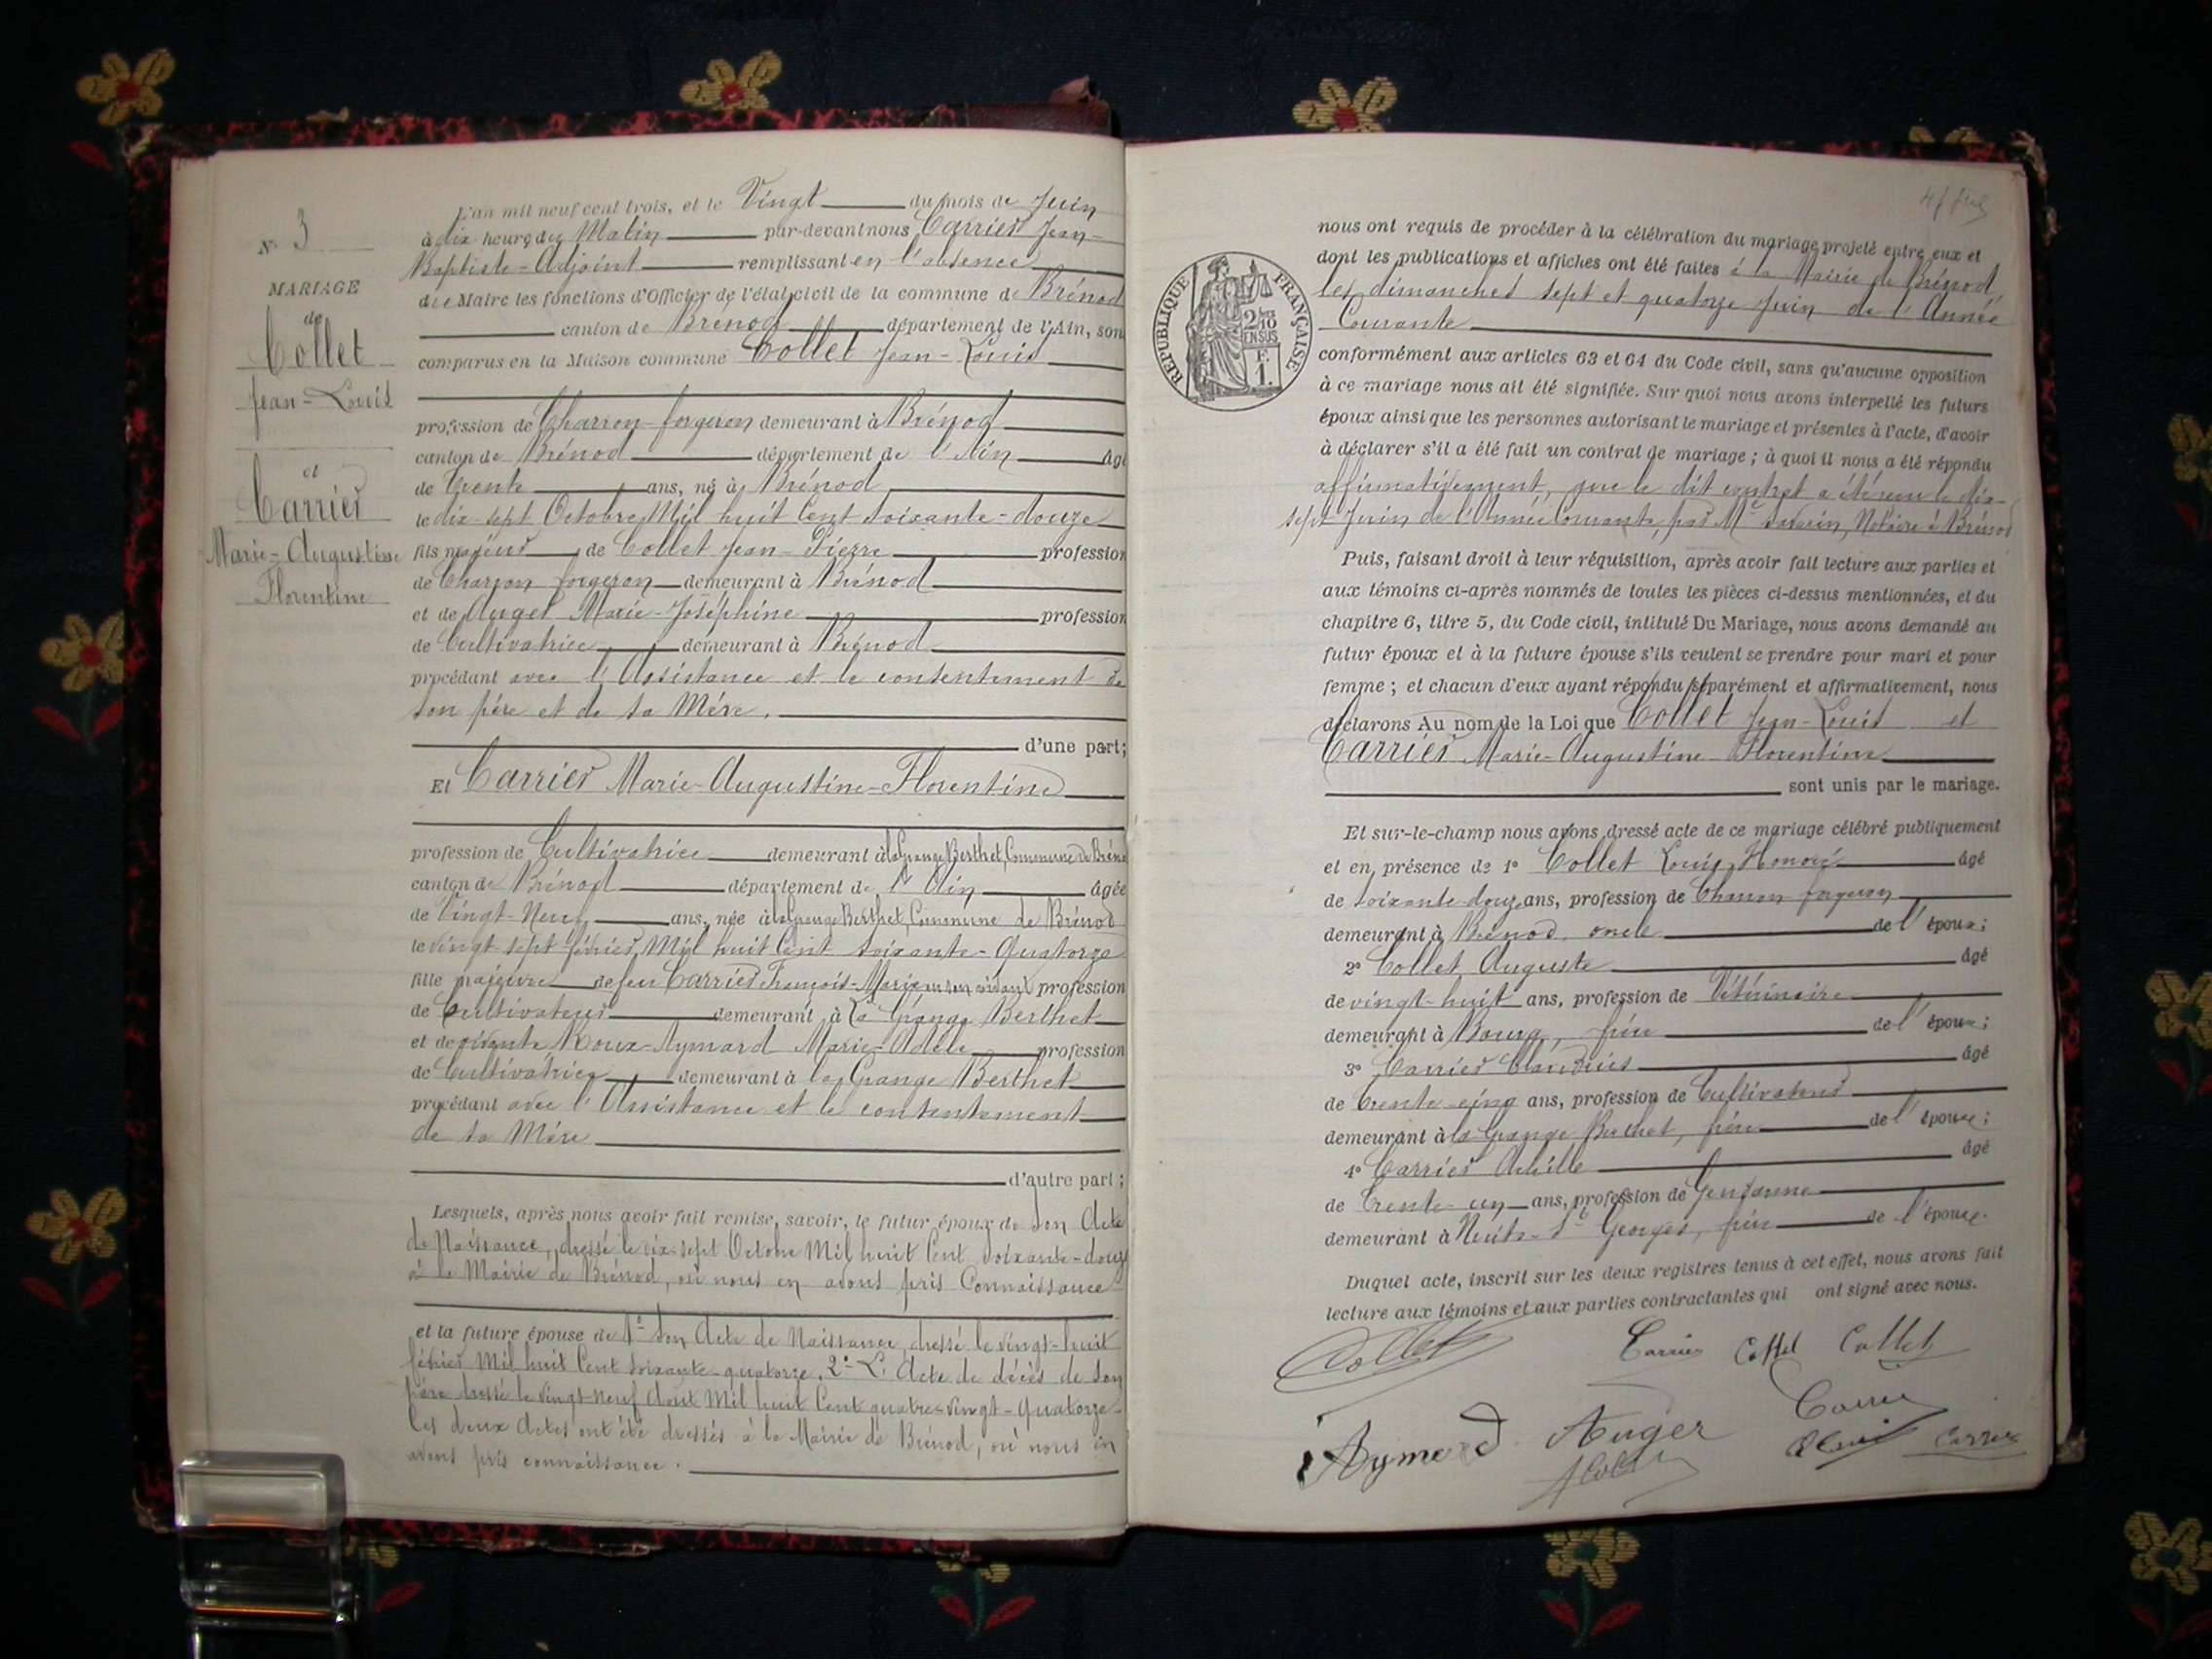 N° 3
MARIAGE
de
Collet
Jean-Louis
et
Carrier
Marie-Augustine
Florentine
L'an mil neuf cent trois, et le Vingt du mois de Juin
à dix heures du Matin par-devant nous Carrier Jean-
Baptiste-Adjoint remplissant en l'absence
du Maire les fonctions d'Officier de l'état civil de la commune de Brénod
canton de Brénod département de l'Ain, son
comparus en la Maison commune Collet Jean-Louis
profession de Charron-forgeron demeurant à Brénod
canton de Brénod département de l'Ain âgé
de Trente ans, né à Brénod
le dix-sept Octobre Mil huit Cent soixante-douze
fils majeur de Collet Jean-Pierre profession
de Charron forgeron demeurant à Brénod
et de Auger Marie-Joséphine profession
de Cultivatrice demeurant à Brénod
procédant avec l'Assistance et le consentement de
son père et de sa Mère.
d'une part;
Et Carrier Marie-Augustine-Florentine
profession de Cultivatrice demeurant à la Grange Berthet, Commune de Brénod
canton de Brénod département de l'Ain âgée
de Vingt-Neuf ans, née à la Grange Berthet, Commune de Brénod
le vingt-sept février Mil huit Cent soixante-Quatorze
fille majeure de feu Carrier François-Marie en son vivant profession
de Cultivateur demeurant à La Grange Berthet
et de vivante Roux-Aymard Marie-Adèle profession
de Cultivatrice demeurant à la Grange Berthet
procédant avec l'Assistance et le consentement
de sa Mère
d'autre part;
Lesquels, après nous avoir fait remise, savoir, le futur époux de son Acte
de Naissance, dressé le dix-sept Octobre Mil huit Cent soixante-douze
à la Mairie de Brénod, où nous en avons pris Connaissance
et la future épouse de 1° son Acte de Naissance, dressé le vingt-huit
février Mil huit Cent soixante-quatorze, 2° L'Acte de décès de son
père dressé le vingt-neuf Août Mil huit Cent quatre-vingt-quatorze
Les deux Actes ont été dressés à la Mairie de Brénod, où nous en
avons pris connaissance.
RÉPUBLIQUE FRANÇAISE
2/10
EN SUS
F.
1.
nous ont requis de procéder à la célébration du mariage projeté entre eux et
dont les publications et affiches ont été faites à la Mairie de Brénod
les dimanches sept et quatorze Juin de l'Année
Courante
conformément aux articles 63 et 64 du Code civil, sans qu'aucune opposition
à ce mariage nous ait été signifiée. Sur quoi nous avons interpellé les futurs
époux ainsi que les personnes autorisant le mariage et présentes à l'acte, d'avoir
à déclarer s'il a été fait un contrat de mariage; à quoi il nous a été répondu
affirmativement, que le dit contrat a été reçu le dix-
sept Juin de l'Année Courante, par Me Savarin, Notaire à Brénod
Puis, faisant droit à leur réquisition, après avoir fait lecture aux parties et
aux témoins ci-après nommés de toutes les pièces ci-dessus mentionnées, et du
chapitre 6, titre 5, du Code civil, intitulé Du Mariage, nous avons demandé au
futur époux et à la future épouse s'ils veulent se prendre pour mari et pour
femme; et chacun d'eux ayant répondu séparément et affirmativement, nous
déclarons Au nom de la Loi que Collet Jean-Louis et
Carrier Marie-Augustine-Florentine
sont unis par le mariage.
Et sur-le-champ nous avons dressé acte de ce mariage célébré publiquement
et en présence de 1° Collet Louis-Honoré âgé
de soixante-douze ans, profession de Charron forgeron
demeurant à Brénod, oncle de l'époux;
2° Collet Auguste âgé
de vingt-huit ans, profession de Vétérinaire
demeurant à Bourg, frère de l'époux;
3° Carrier Claudius âgé
de Trente-cinq ans, profession de Cultivateur
demeurant à la Grange Berthet, frère de l'épouse;
4° Carrier Achille âgé
de Trente-un ans, profession de Gendarme
demeurant à Nuits-St Georges, frère de l'épouse.
Duquel acte, inscrit sur les deux registres tenus à cet effet, nous avons fait
lecture aux témoins et aux parties contractantes qui ont signé avec nous.
Collet
Carrier Collet Collet
Aymard Auger
Carrier
Carrier